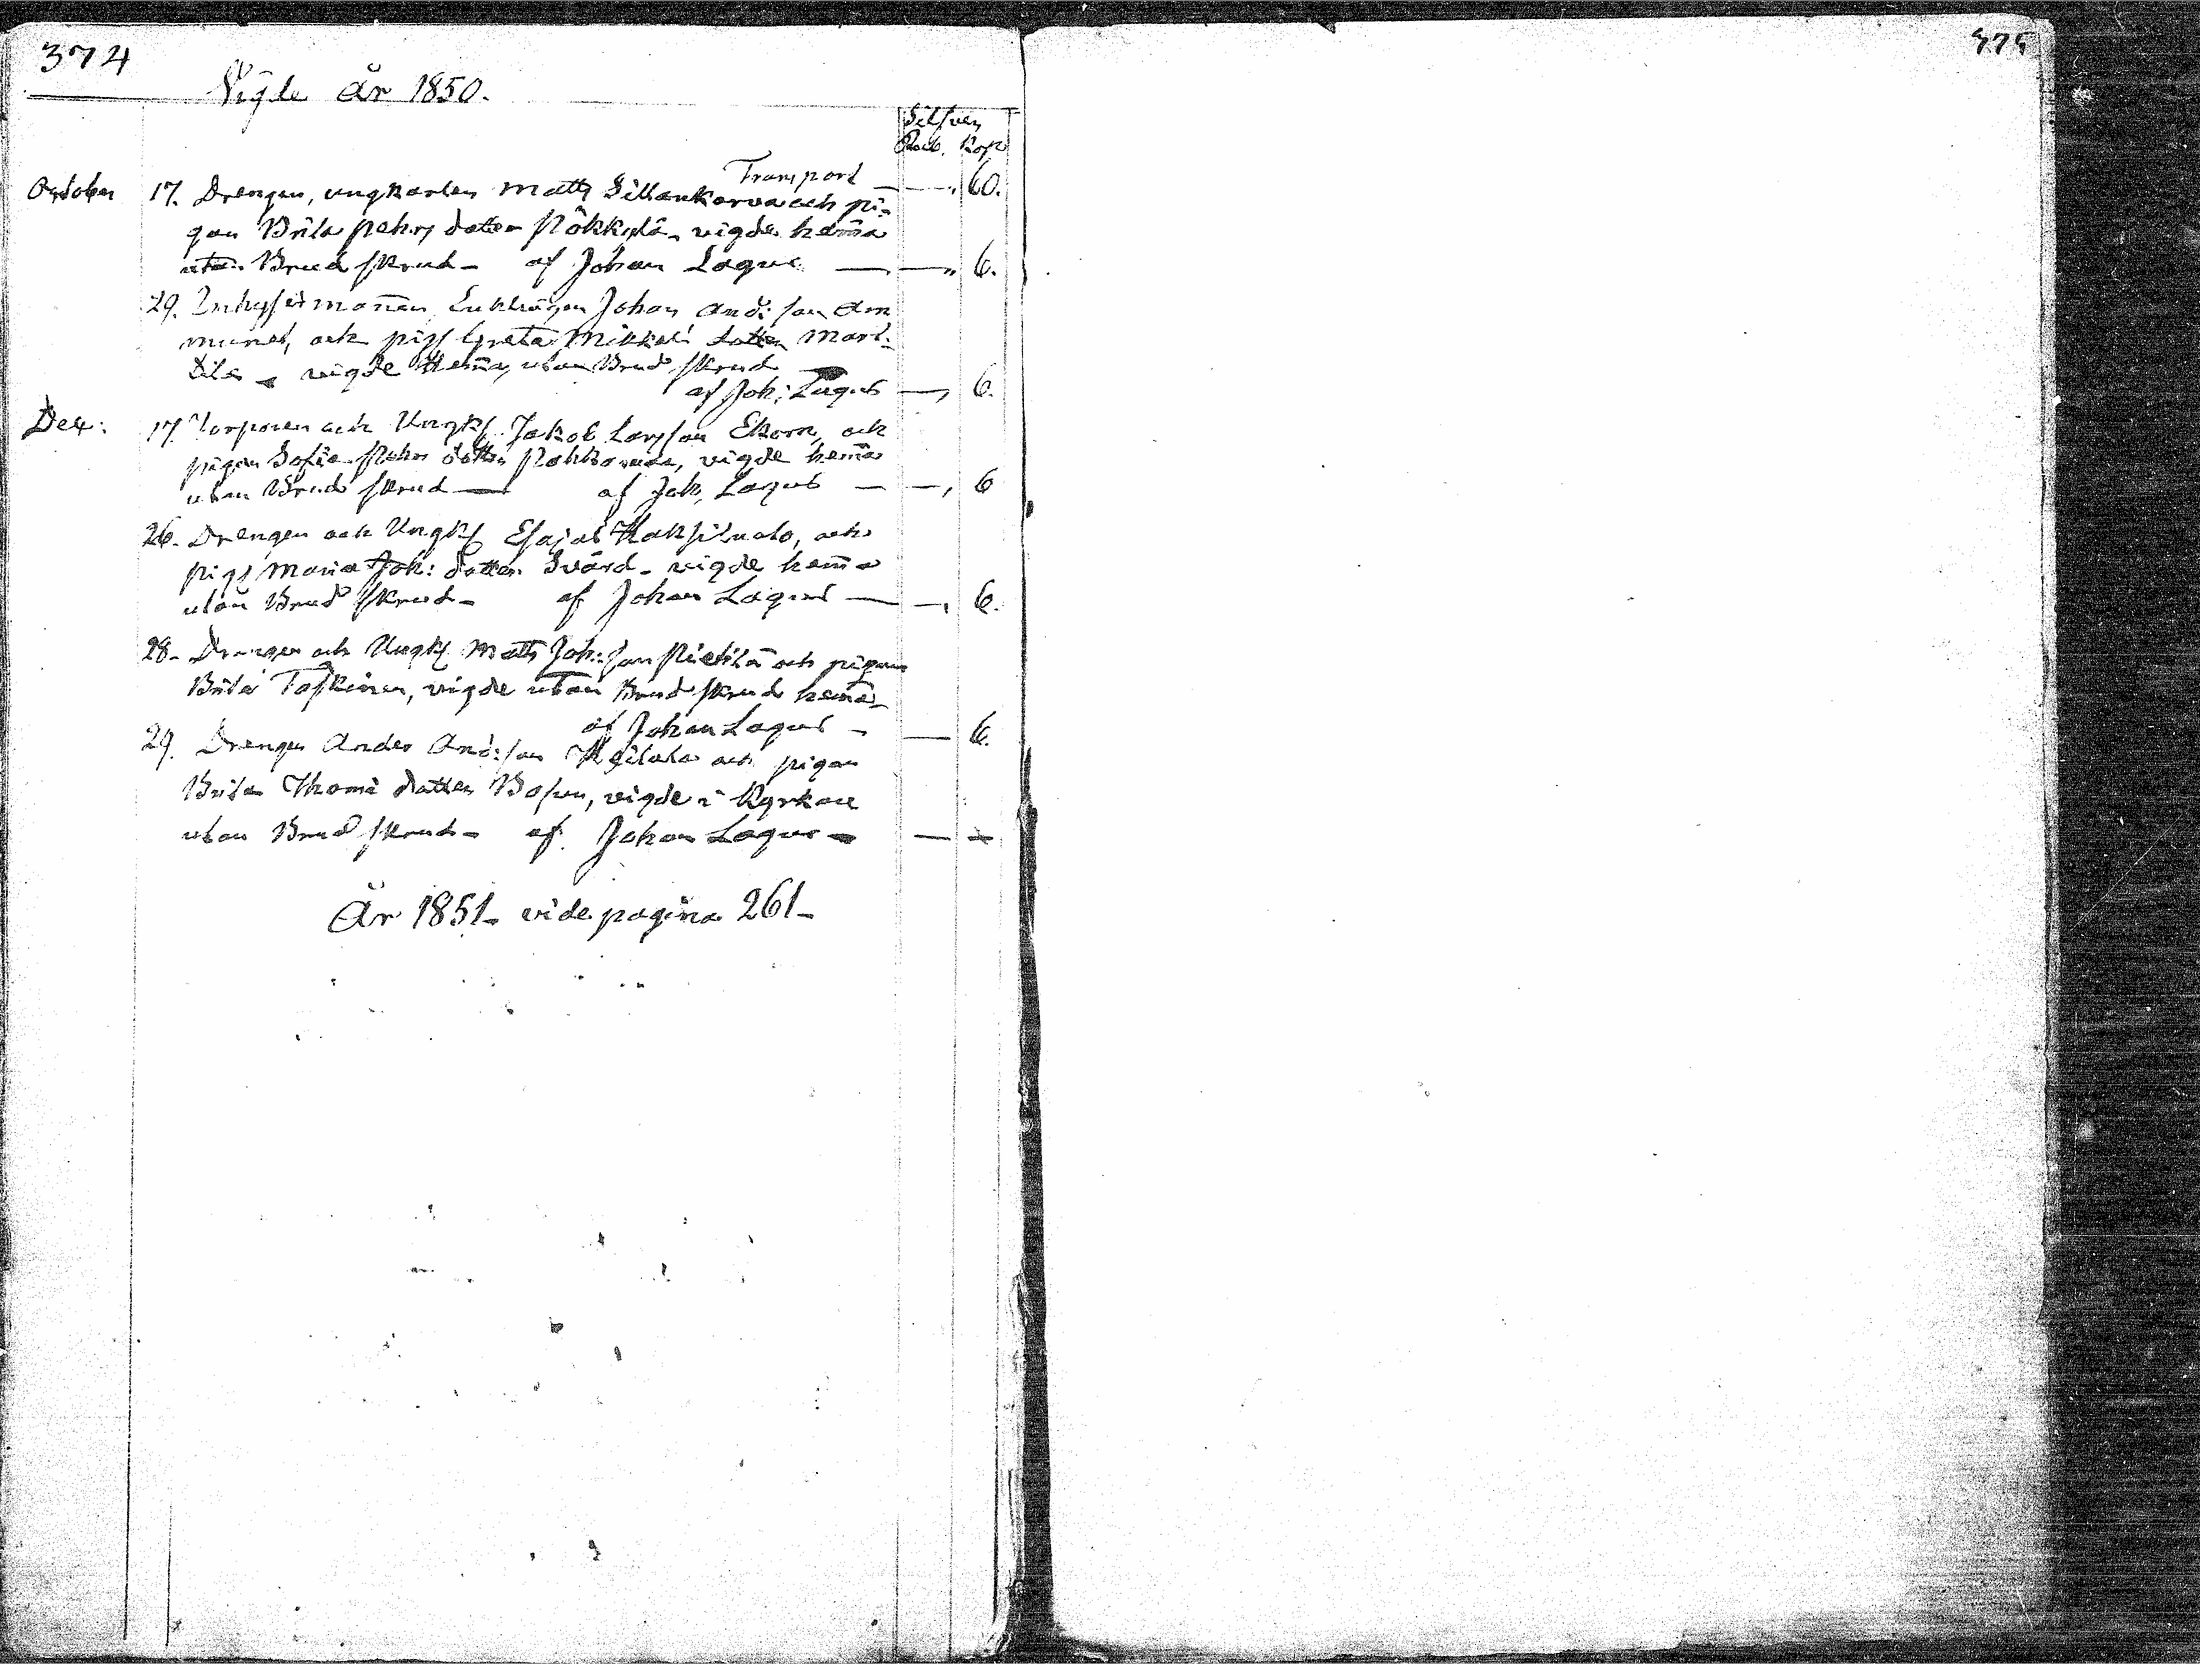 374
Vigde År 1850.
Silfver
Rub. Kop
Transport — — „ 60.
October 17. Drengen, ungkarlen Matts Sillankorva och pi-
gan Brita Pehrs dotter Pökkylä - vigde hem̄a
utan Brud skrud - af Johan Lagus — — „ 6.
29. Inhysesman̄en Enklingen Johan And: son Am
munet, och pig Greta Mikkels dotter Mart-
tila - vigde Hem̄a, utan Brud skrud
af Joh: Lagus — , 6.
Dec: 17. Torparen och Ungk Jakob Larsson Ekorn, och
pigan Sofia Pehrs dotter, vigde hem̄a
utan Brud skrud — af Joh, Lagus — — , 6
26. Drengen och Ungk Esajas Haksiluoto, och
pig Maria Joh: dotter Svärd - vigde hem̄a
utan Brud skrud - af Johan Lagus — — , 6.
28. Drengen och Ungk Matts Joh: son Pietilä och pigan
Brita Taskinen, vigde utan Brud skrud hem̄a -
af Johan Lagus - — 6.
29. Drengen Anders And: son Heilala och pigan
Brita Thoms dotter, vigde i Kyrkan
utan Brud skrud - af Johan Lagus - — —
År 1851 - vide pagina 261 -
375